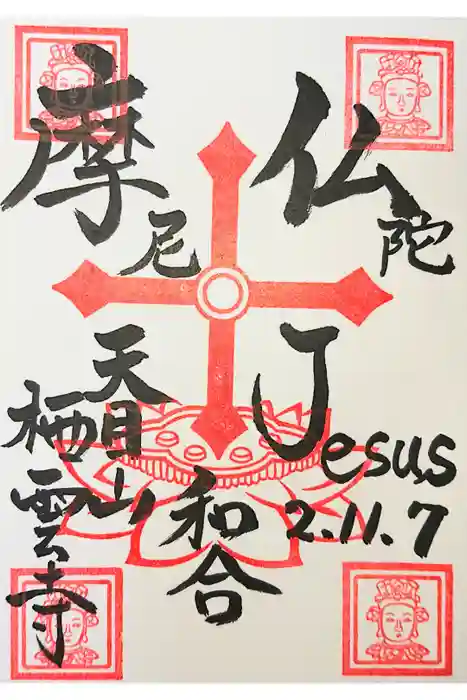 仏陀
摩尼
Jesus
2.11.7
和合
天目山
栖雲寺